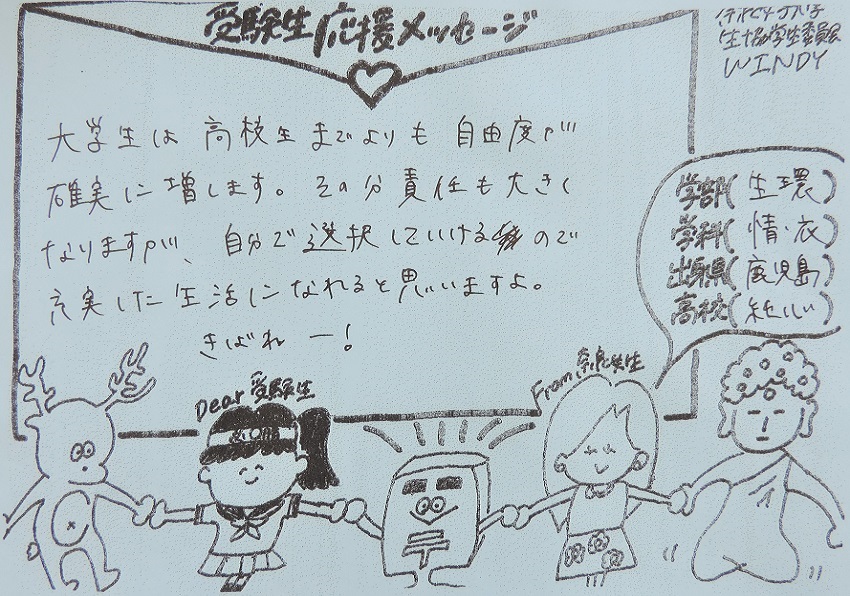 受験生応援メッセージ
生協学生委員会
WINDY
大学生は高校生までよりも自由度が
確実に増します。その分責任も大きく
なりますが、自分で選択していけるので
充実した生活になれると思いますよ。
きばれー!
学部(生環)
学科(情・衣)
出身県(鹿児島)
高校()
Dear 受験生
From 奈良女生
必〇勝
〒